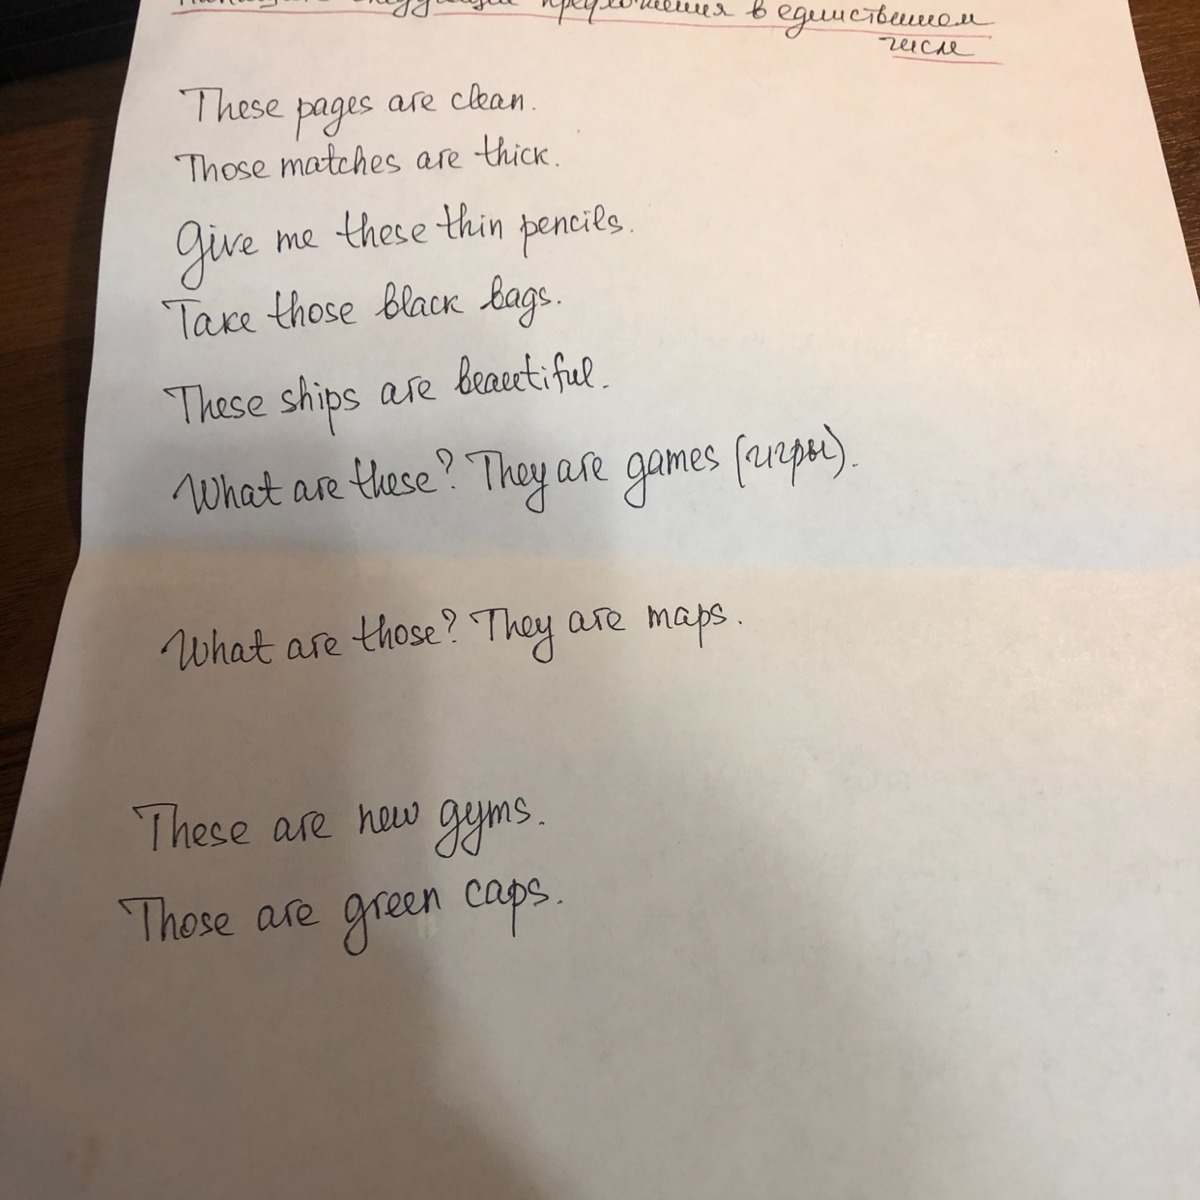 следующие предложения в единственном
числе
These pages are clean.
Those matches are thick.
Give me these thin pencils.
Take those black bags.
These ships are beautiful.
What are these? They are games (игры).
What are those? They are maps.
These are new gyms.
Those are green caps.